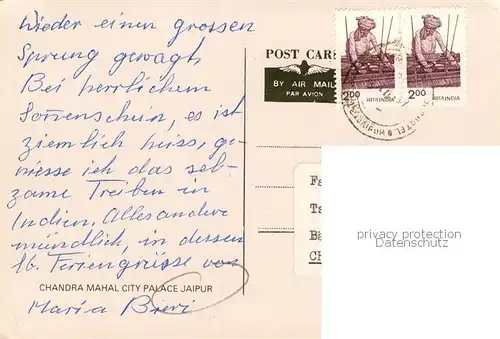 Wieder einen grossen
Sprung gewagt
Bei herrlichem
Sonnenschein, es ist
ziemlich heiss, ge-
niesse ich das selt-
zame Treiben in
Indien. Alles andere
mündlich, in dessen
lb. Feriengrüsse von
CHANDRA MAHAL CITY PALACE JAIPUR
Maria
POST CARD
BY AIR MAIL
PAR AVION
2.00 भारत INDIA
2.00 भारत INDIA
Fa
Ts
Ba
CH
privacy protection
Datenschutz